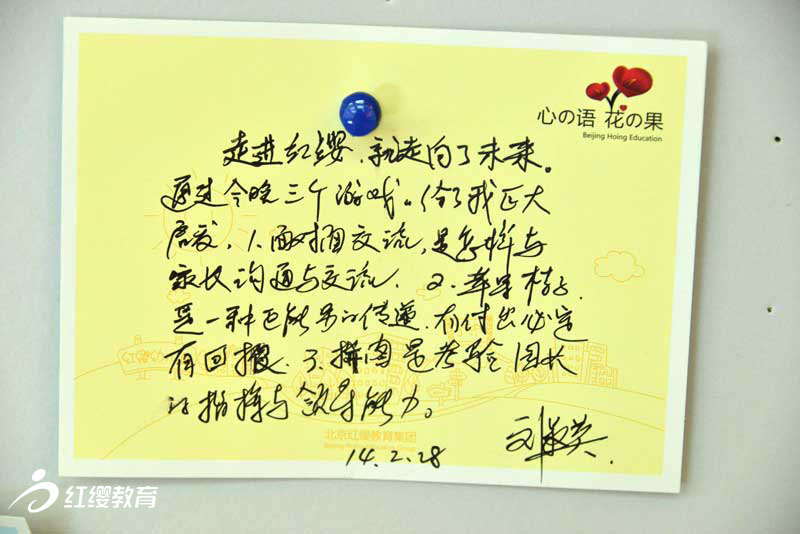 心の语 花の果
Beijing Hoing Education
走进红缨,就走向了未来。
通过今晚三个游戏。给了我巨大
启发,1.面对面交流,是怎样与
家长沟通与交流. 2.苹果树
是一种正能量的传递,有付出必定
有回报. 3.拼图是考验园长
的指挥与领导能力。
刘
14.2.28
北京红缨教育集团
红缨教育